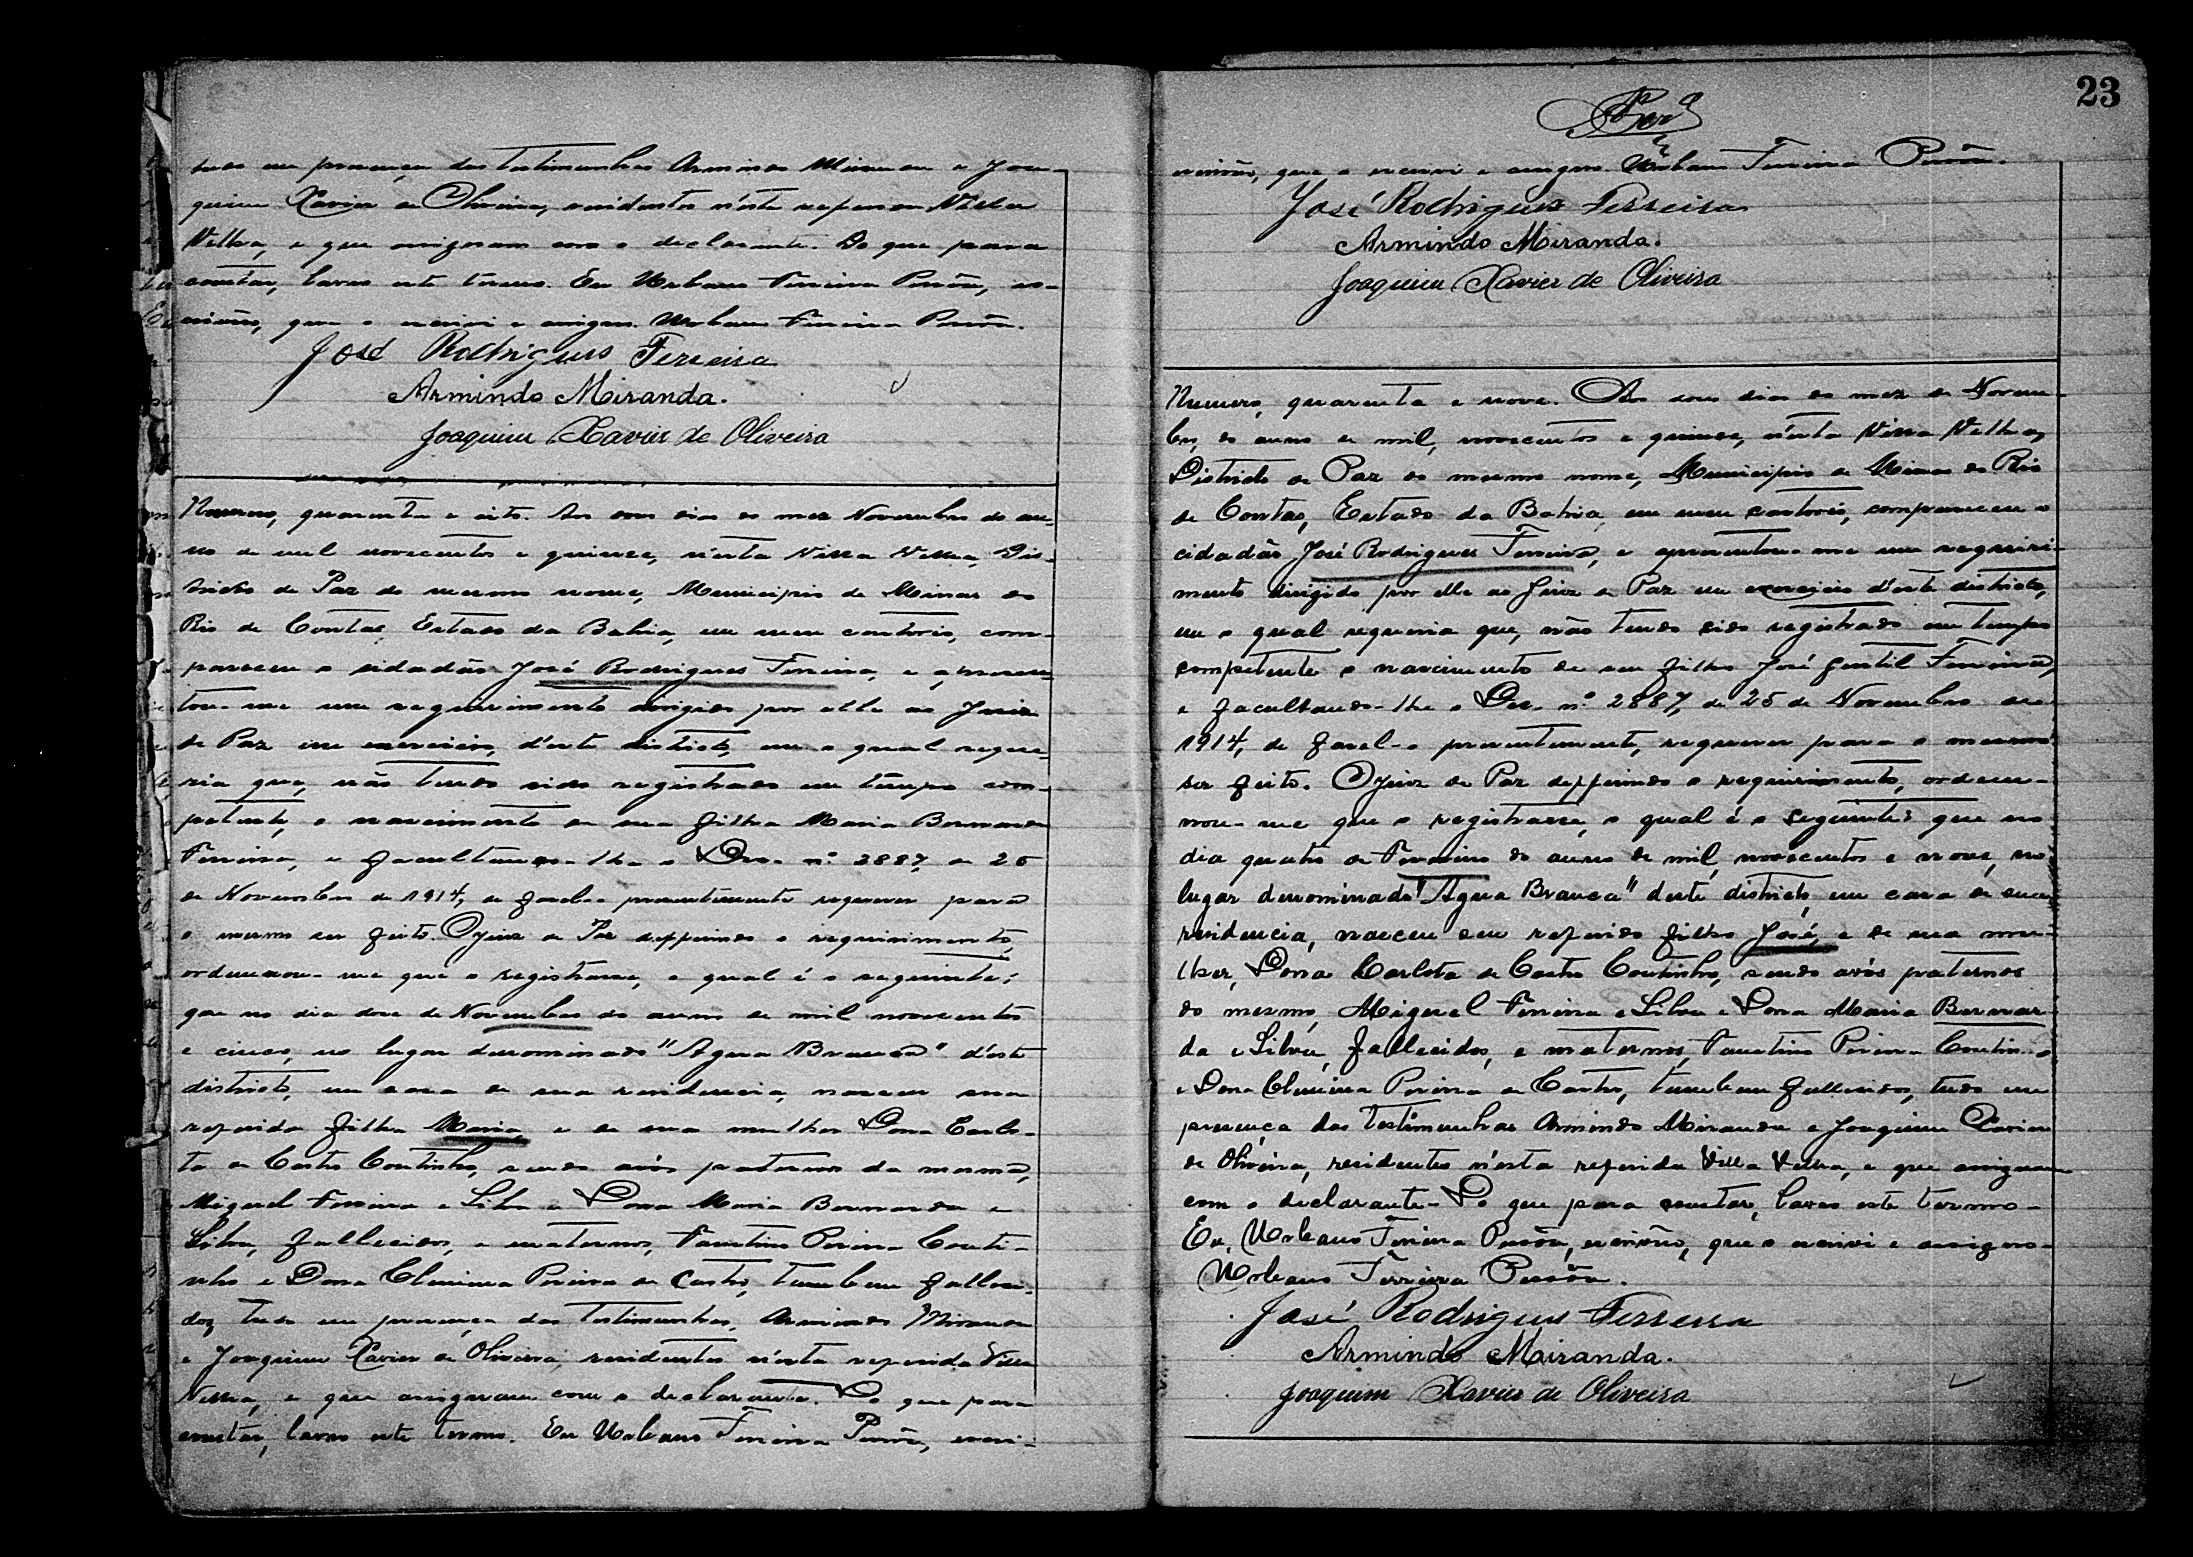 tudo em presença das testimunhas Armindo Miranda e Joa-
quim Xavier de Oliveira, residentes n'esta referida Villa
Velha, e que assignam com o declarante. Do que para
constar, lavro este termo. Eu Urbano Ferreira Pessôa, es-
crivão, que o escrevi e assigno. Urbano Ferreira Pessôa.
José Rodrigues Ferreira
Armindo Miranda.
Joaquim Xavier de Oliveira
Numero, quarenta e oito. Aos dous dias do mez Novembro do an-
no de mil novecentos e quinze, n'esta Villa Velha, Dis-
tricto de Paz do mesmo nome, Municipio de Minas do
Rio de Contas, Estado da Bahia, em meu cartorio, com-
pareceu o cidadão José Rodrigues Ferreira, e apresen-
tou-me um requirimento dirigido por elle ao Juiz
de Paz em exercicio, d'este districto, em o qual reque-
ria que, não tendo sido registrado em tempo com-
petente, o nascimento de sua filha Maria Bernarda
Ferreira, e facultando-lhe o Dec. nº 2887, de 25
de Novembro de 1914, de fazel-o presentemente requerer para
o mesmo ser feito. O Juiz de Paz defferindo o requirimento,
ordenou-me que o registrasse, o qual é o seguinte:
que no dia doze de Novembro do anno de mil novecentos
e cinco, no lugar denominado "Agua Branca" d'este
districto, em casa de sua residencia, nasceu sua
referida filha Maria, e de sua mulher Dona Carlo-
ta de Castro Coutinho, sendo avós paternos da mesma,
Miguel Ferreira e Silva e Dona Maria Bernarda e
Silva, fallecidos, e maternos, Faustino Pereira Couti-
nho e Dona Clemira Pereira de Castro, tambem falleci-
dos, tudo em presença das testimunhas, Armindo Miranda
e Joaquim Xavier de Oliveira, residentes n'esta referida Villa
Velha, e que assignam com o declarante. Do que para
constar, lavro este termo. Eu Urbano Ferreira Pessôa, escri-
23
escrivão, que o escrevi e assigno. Urbano Ferreira Pessôa.
José Rodrigues Ferreira
Armindo Miranda.
Joaquim Xavier de Oliveira
Numero, quarenta e nove. Aos dous dias do mez de Novem-
bro, do anno de mil, novecentos e quinze, n'esta Villa Velha,
Districto de Paz do mesmo nome, Municipio de Minas do Rio
de Contas, Estado da Bahia, em meu cartorio, compareceu o
cidadão José Rodrigues Ferreira, e apresentou-me um requiri-
mento dirigido por elle ao Juiz de Paz em exercicio d'este districto,
em o qual requeria que, não tendo sido registrado em tempo
competente o nascimento de seu filho José Gentil Ferreira,
e facultando-lhe o Dec. nº 2887, de 25 de Novembro de
1914, de fazel-o presentemente, requerer para o mesmo
ser feito. O Juiz de Paz defferindo o requirimento, orden-
nou-me que o registrasse, o qual é o seguinte: que no
dia quatro de Fevereiro do anno de mil, novecentos e nove, no
lugar denominado "Agua Branca" deste districto, em casa de sua
residencia, nasceu seu referido filho José, e de sua mu-
lher, Dona Carlota de Castro Coutinho, sendo avós paternos
do mesmo, Miguel Ferreira e Silva e Dona Maria Bernar-
da e Silva, fallecidos, e maternos, Faustino Pereira Coutinho
e Dona Clemira Pereira de Castro, tambem fallecidos, tudo em
presença das testimunhas Armindo Miranda e Joaquim Xavier
de Oliveira, residentes n'esta referida Villa Velha, e que assignam
com o declarante. Do que para constar, lavro este termo.
Eu, Urbano Ferreira Pessôa, escrivão, que o escrevi e assigno.
Urbano Ferreira Pessôa.
José Rodrigues Ferreira
Armindo Miranda.
Joaquim Xavier de Oliveira